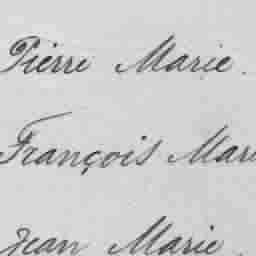 Pierre Marie.
François Mari
Jean Marie.